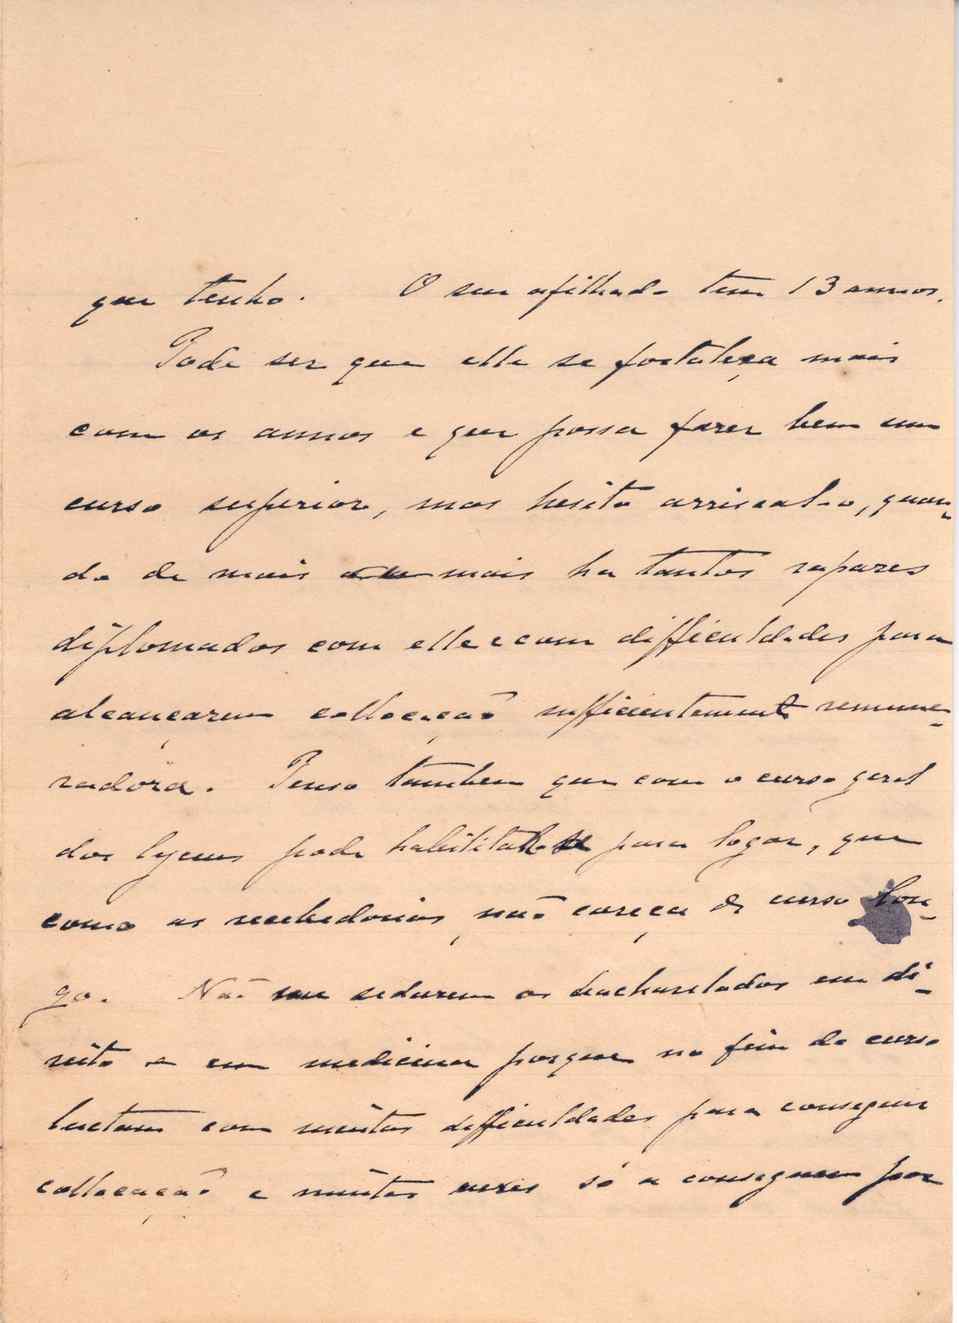 que tenho. O seu afilhado tem 13 annos.
Pode ser que elle se fortaleça mais
com os annos e que possa fazer bem um
curso superior, mas hesito arriscal-o, quan-
do de mais a mais ha tantos rapazes
diplomados com elle e com difficuldades para
alcançarem collocação sufficientemente remune-
radora. Penso tambem que com o curso geral
dos lyceus pode habilitar-se para logar, que
como as recebedorias, não careça de curso lon-
go. Não me seduzem os bacharelados em di-
reito e em medicina porque no fim do curso
luctam com muitas difficuldades para conseguir
collocação e muitas vezes só a conseguem por